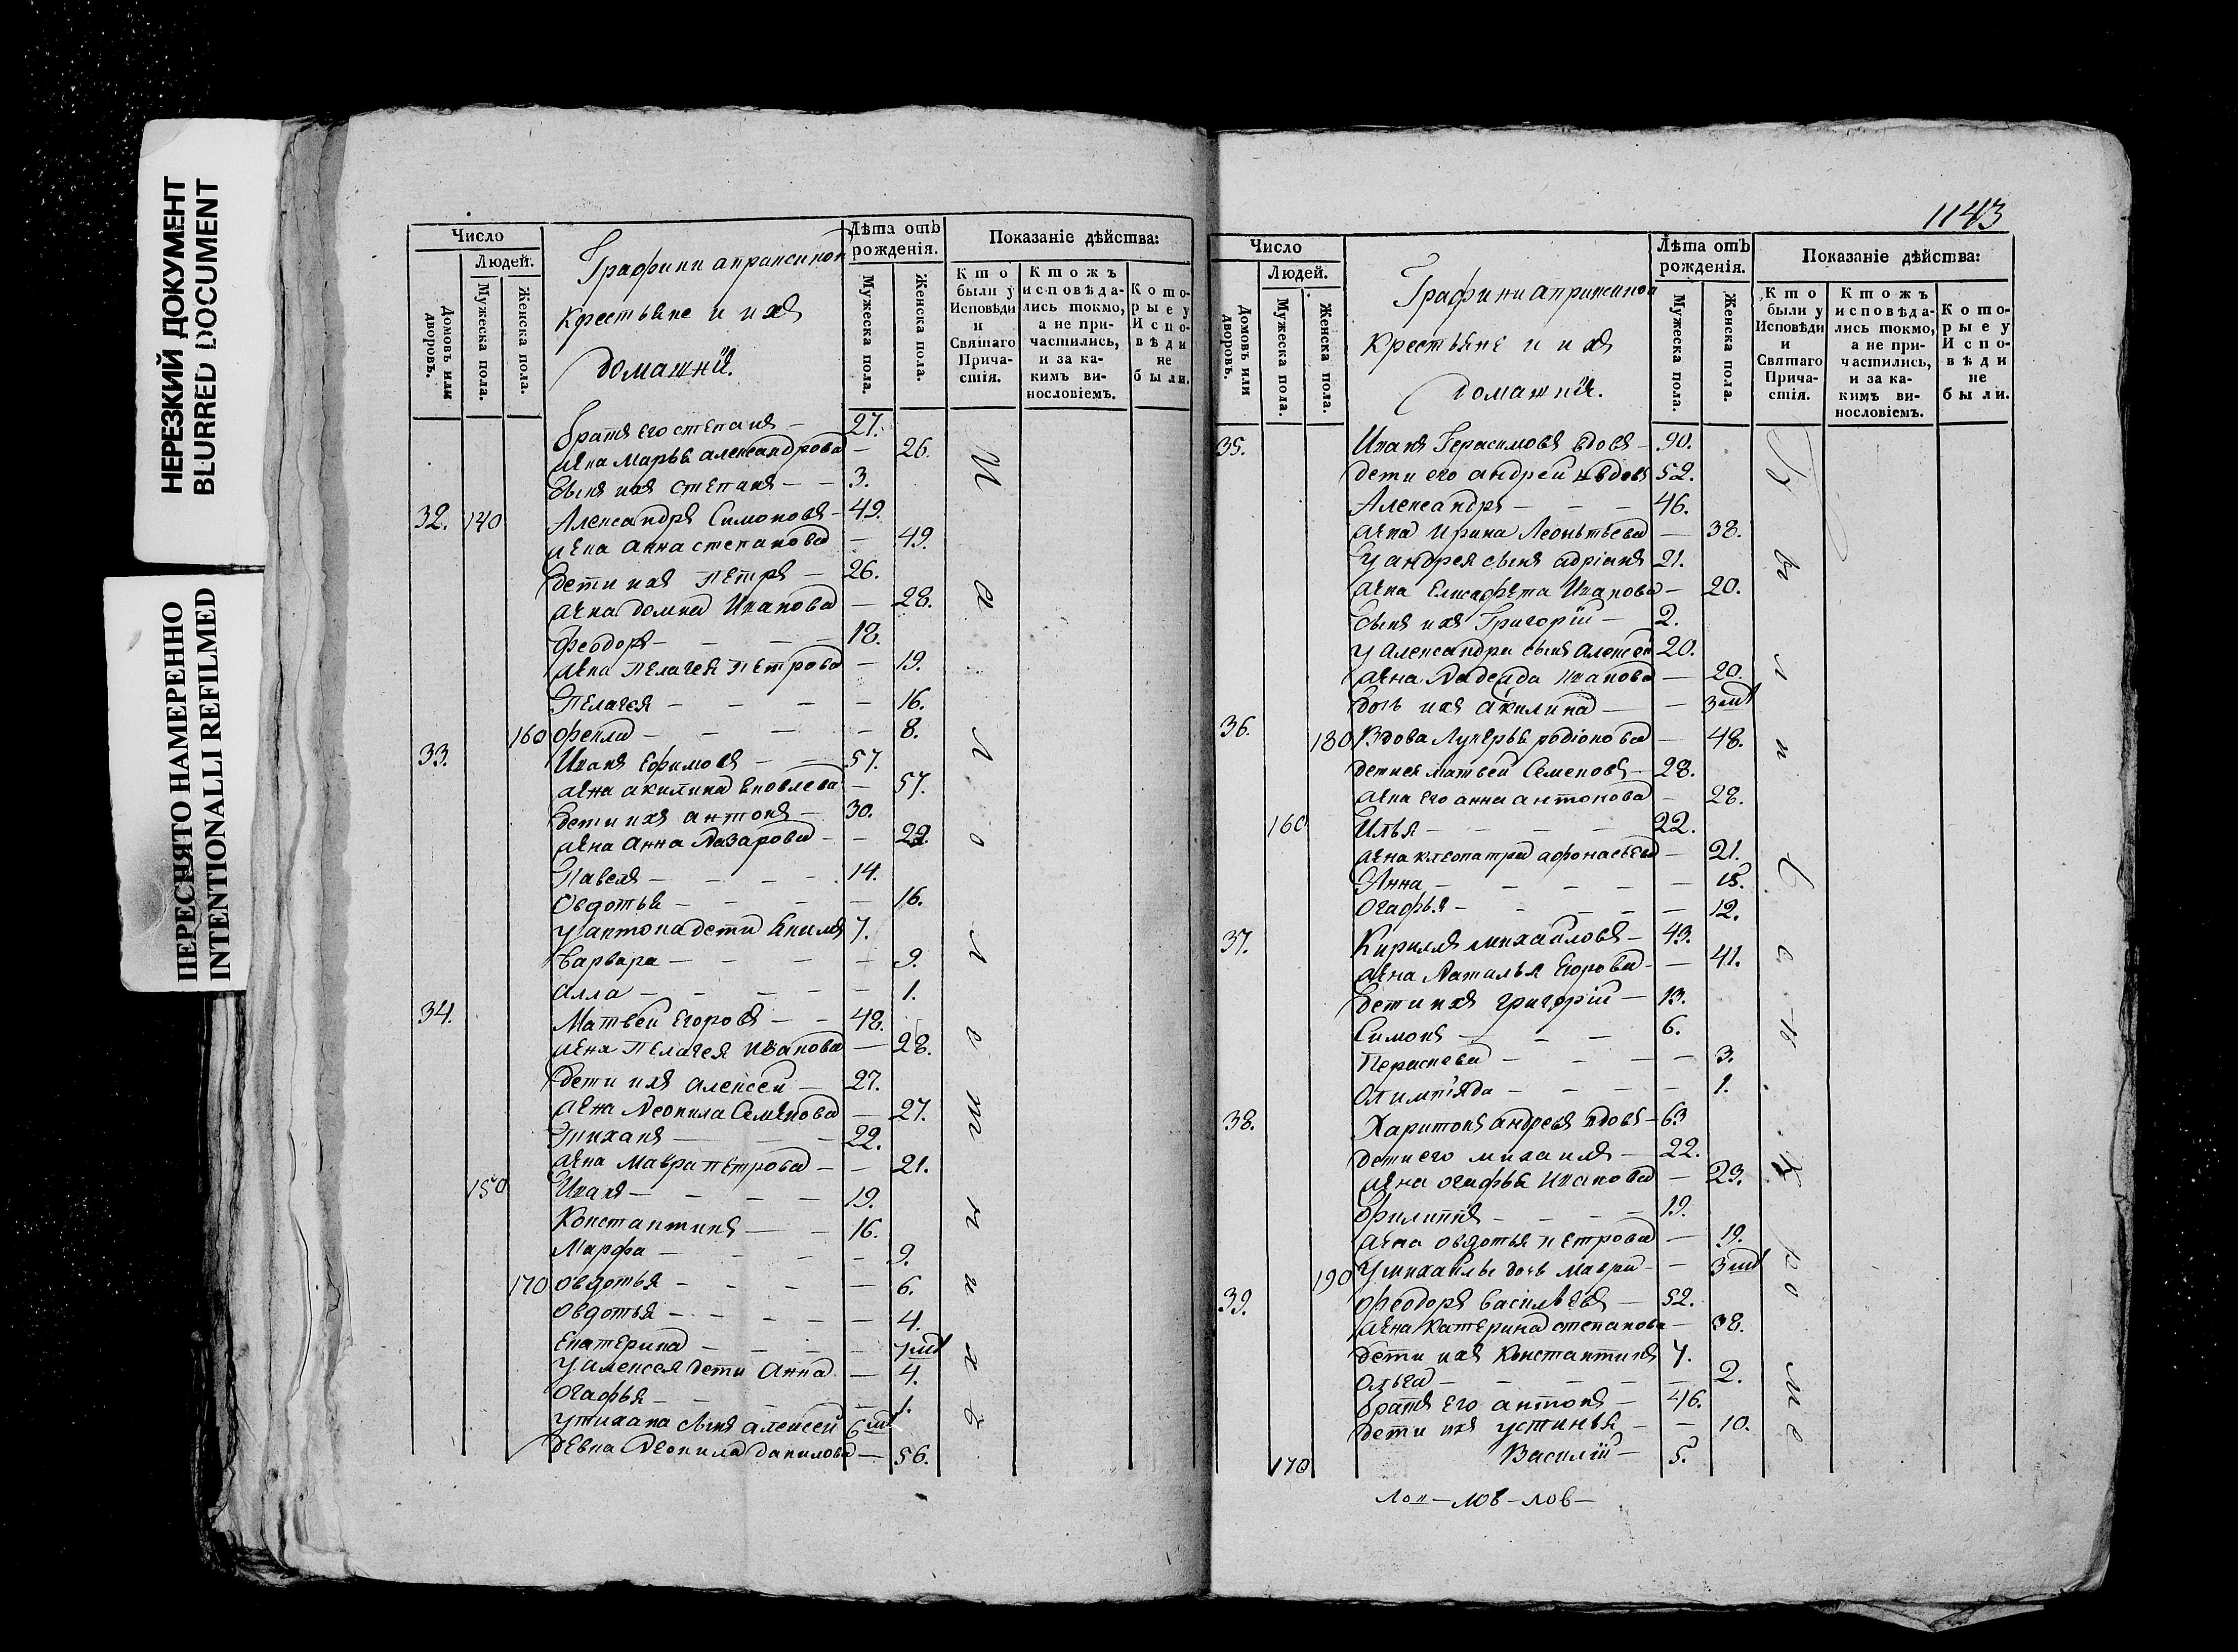 НЕРЕЗКИЙ ДОКУМЕНТ
BLURRED DOCUMENT
ПЕРЕСНЯТО НАМЕРЕННО
INTENTIONALLI REFILMED
Число
Людей.
Домовъ или дворовъ.
Мужеска пола.
Женска пола.
Графини апраксиной
крестьяне и ихъ
домашніе.
Лѣта отъ рожденія.
Мужеска пола.
Женска пола.
Показаніе дѣйства:
Кто были у Исповѣди и Святаго Причастія.
Ктожъ исповѣдались токмо, а не причастились, и за какимъ винословіемъ.
Которые у Исповѣди не были.
братъ его степанъ — 27.
жена марья александрова — 26.
сынъ ихъ степанъ — — 3.
32. 140 Александръ Симоновъ — 49.
жена анна степанова — 49.
дети ихъ петръ — 26.
жена домна Иванова — 28.
феодоръ — — — 18.
жена пелагея петрова — 19.
Пелагея — — — — 16.
160 фекла — — — — 8.
33. Иванъ Ефимовъ — — 57.
жена акилина яковлева — 57.
дети ихъ антонъ — 30.
жена анна Назарова — — 29.
Павелъ — — — — 14.
овдотья — — — — 16.
у антона дети якимъ 7.
варвара — — — — 9.
алла — — — — — 1.
34. Матвей Егоровъ — — 48.
жена пелагея иванова — 28.
дети ихъ алексей — 27.
жена Неонила Семенова — 27.
Тиханъ — — — 22.
жена мавра петрова — — 21.
150 Иванъ — — — — 19.
Константинъ — — 16.
Марфа — — — — 9.
170 овдотья — — — — 6.
овдотья — — — — — 4.
екатерина — — — — 7 мцъ
у алексея дети анна — 4.
огафья — — — — 1.
у тихана сынъ алексей 6 мцъ
девка Неонила данилова — 56.
1143
Число
Людей.
Домовъ или дворовъ.
Мужеска пола.
Женска пола.
Графини апраксиной
крестьяне и ихъ
домашніе.
Лѣта отъ рожденія.
Мужеска пола.
Женска пола.
Показаніе дѣйства:
Кто были у Исповѣди и Святаго Причастія.
Ктожъ исповѣдались токмо, а не причастились, и за какимъ винословіемъ.
Которые у Исповѣди не были.
35. Иванъ Герасимовъ вдовъ — 90.
дети его андрей вдовъ 52.
Александръ — — — 46.
жена ирина Леонтьева — 38.
У андрея сынъ адріанъ 21.
жена Елисафета Иванова — 20.
сынъ ихъ Григорій — 2.
у александра сынъ алексей 20.
жена Надежда иванова — 20.
дочь ихъ акилина — — 3 мцъ
36. 180 Вдова Лукерья родіонова — 48.
дети ея матвей Семеновъ — 28.
жена его анна антонова — 28.
160 Илья — — — — 22.
жена клеопатра афонасьева — 21.
Анна — — — — — 15.
огафья — — — — — 12.
37. Кирилъ михайловъ — 43.
жена Наталья Егорова — — 41.
дети ихъ григорій — 13.
Симонъ — — — 6.
Парасковья — — — — 3.
олимпіяда — — — — — 1.
38. Харитонъ андреевъ вдовъ — 63
дети его михаилъ — 22.
жена огафья Иванова — 23.
филиппъ — — — — 19.
жена овдотья петрова — 19.
190 у михаилы дочь мавра — — 3 мцъ
39. феодоръ васильевъ — 52.
жена катерина степанова — 38.
дети ихъ Константинъ 7.
ольга — — — — — 2.
братъ его антонъ — 46.
дети ихъ устинья — — 10.
170 Василій — 5.